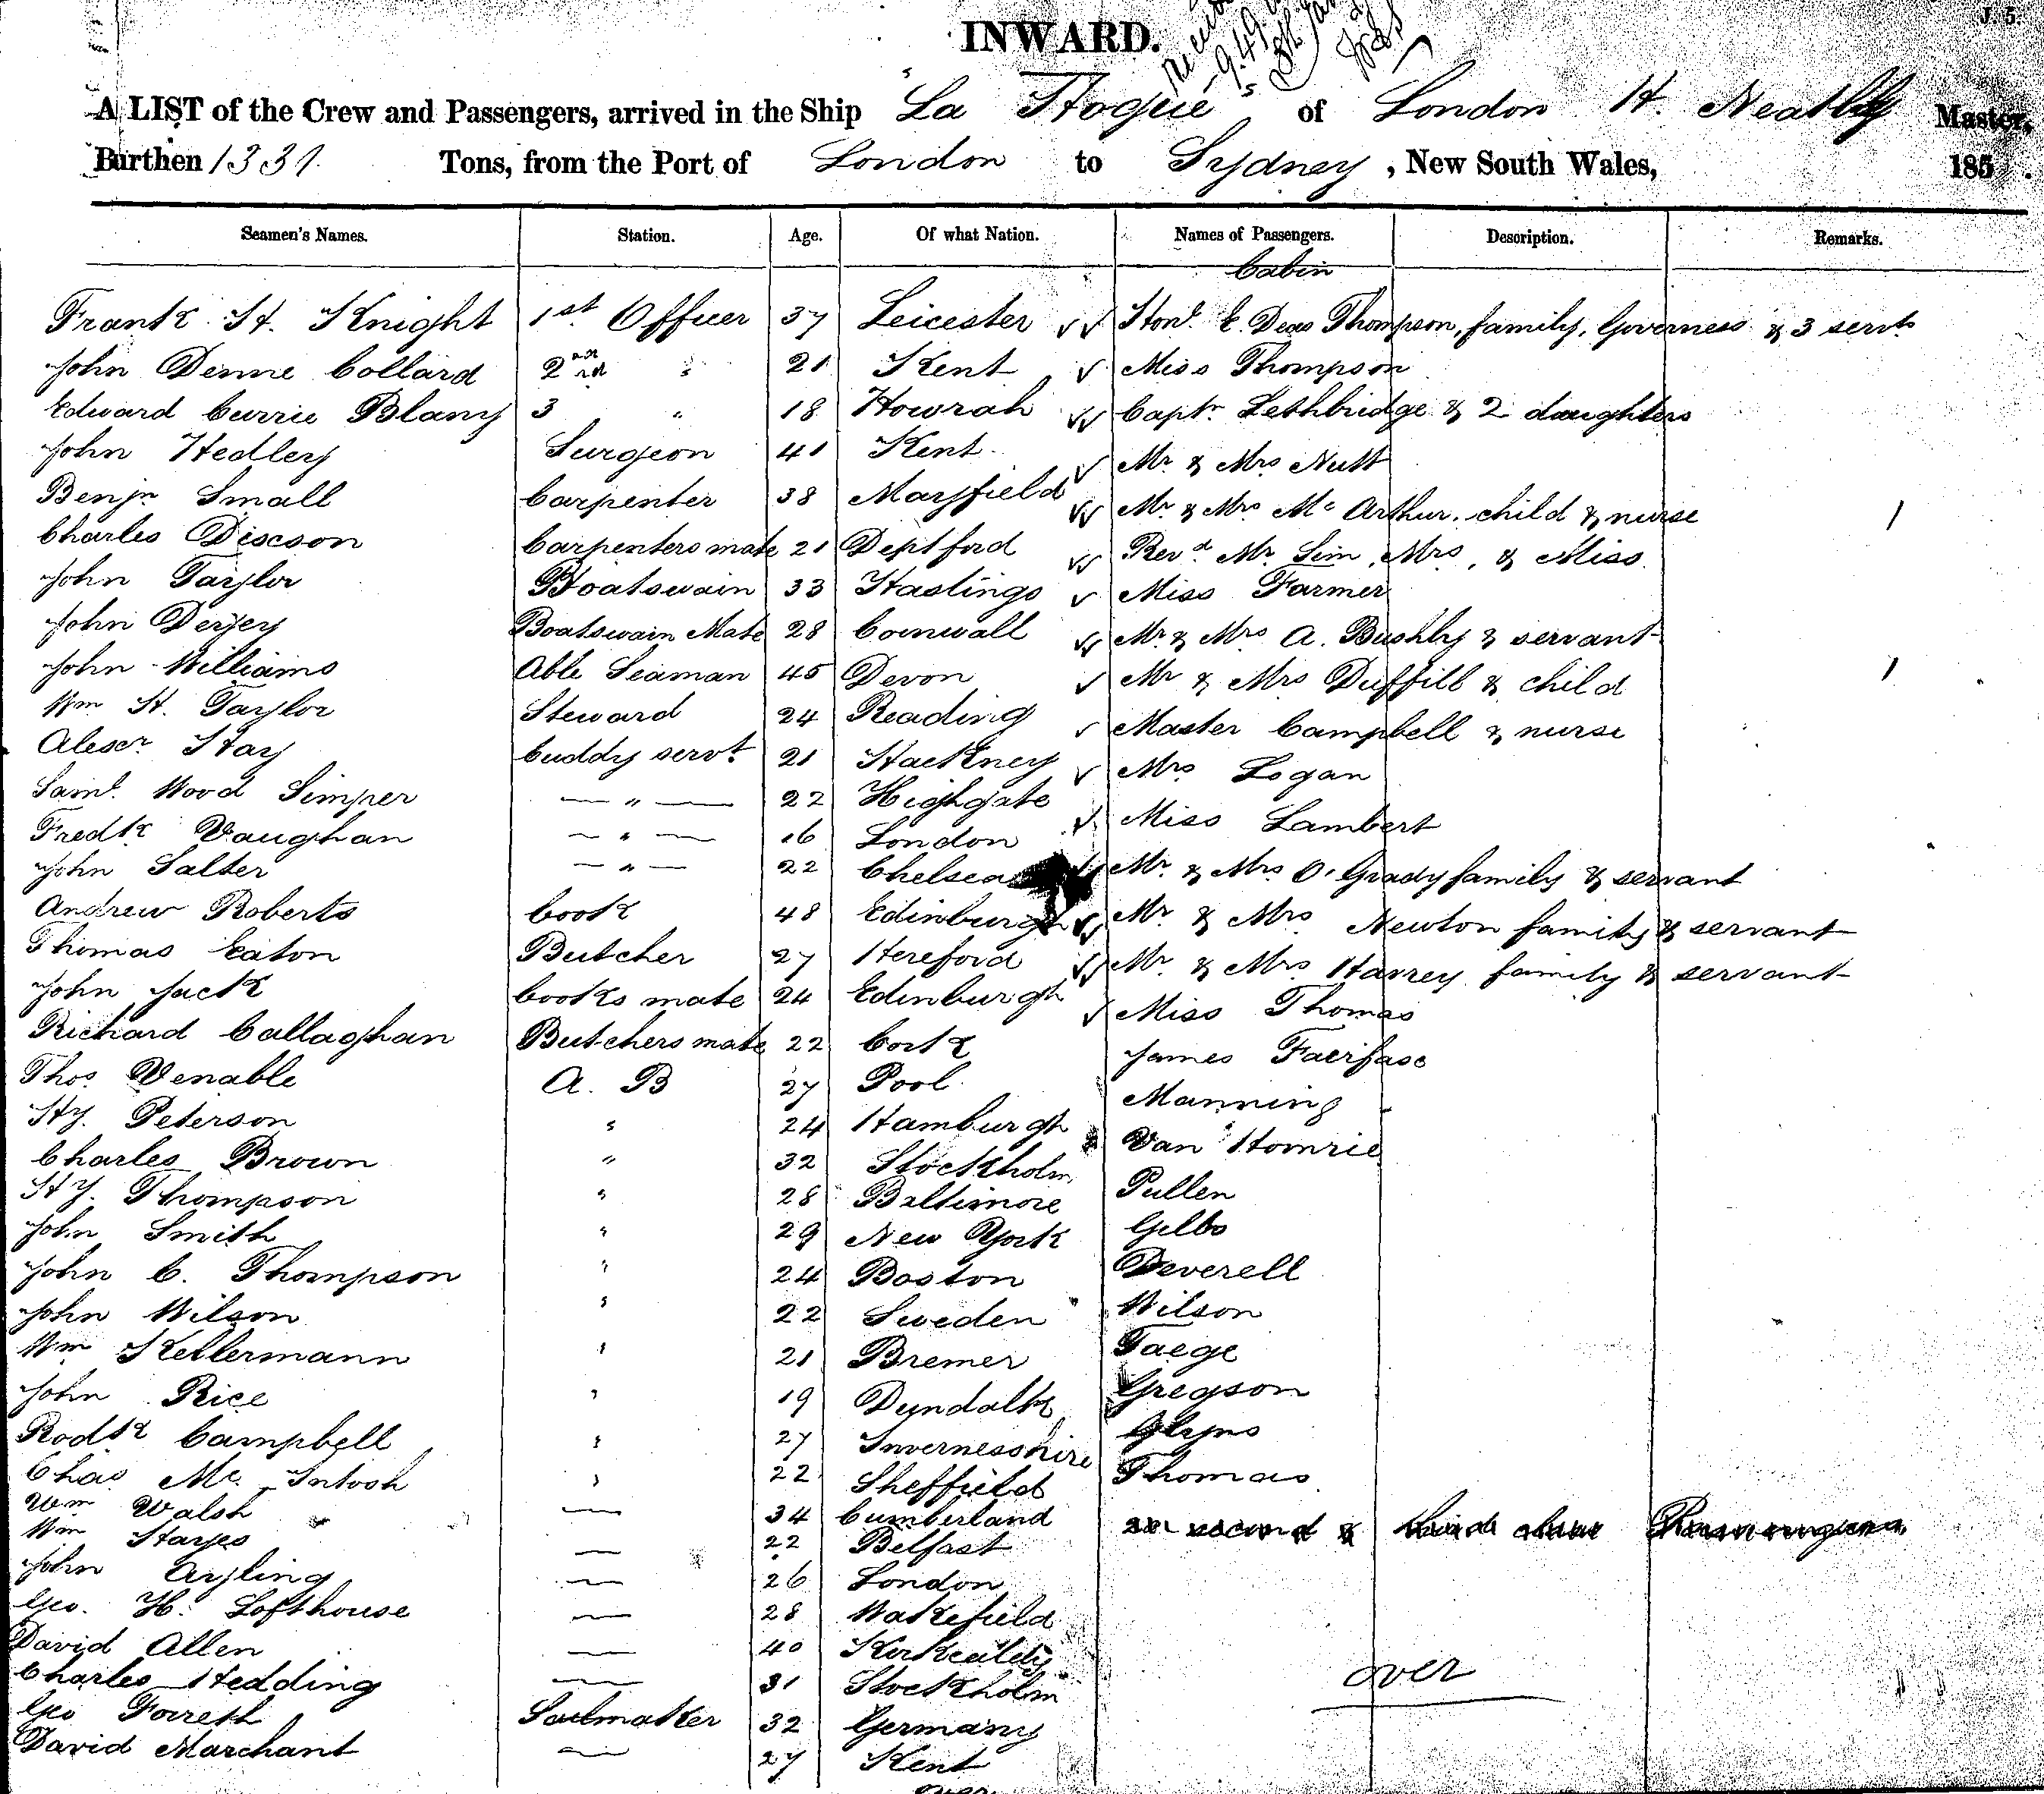 INWARD.
J. 5.
A LIST of the Crew and Passengers, arrived in the Ship "La Hogue" of London H. Neatby Master,
Burthen 1331 Tons, from the Port of London to Sydney, New South Wales, 185
Seamen's Names. Station. Age. Of what Nation. Names of Passengers. Description. Remarks.
Cabin
Frank H. Knight 1st Officer 37 Leicester Honl. E. Deas Thompson, family, Governess & 3 servts
John Denne Collard 2nd " 21 Kent Miss Thompson
Edward Currie Blany 3 " 18 Howrah Captn Lethbridge & 2 daughters
John Hedley Surgeon 41 Kent Mr. & Mrs Nutt
Benjn Small Carpenter 38 Mayfield Mr. & Mrs Mc Arthur. child & nurse
Charles Dixson Carpenters mate 21 Deptford Revd Mr. Sim, Mrs, & Miss
John Taylor Boatswain 33 Hastings Miss Farmer
John Boatswain Mate 28 Cornwall Mr. & Mrs A. Bushby & servant
John Williams Able Seaman 45 Devon Mr & Mrs Duffill & child
Wm H. Taylor Steward 24 Reading Master Campbell & nurse
Alexr Hay Cuddy servt 21 Hackney Mrs Logan
Saml. Wood Simper — " — 22 Highgate Miss Lambert
Fredk Vaughan — " — 16 London
John Salter — " — 22 Chelsea Mr. & Mrs O'Grady family & servant
Andrew Roberts Cook 48 Edinburgh Mr. & Mrs Newton family & servant
Thomas Eaton Butcher 27 Hereford Mr. & Mrs Harvey family & servant
John Jack Cooks mate 24 Edinburgh Miss Thomas
Richard Callaghan Butchers mate 22 Cork James Fairfax
Thos Venable A. B 27 Pool Manning
Hy. Peterson " 24 Hamburgh Van Homrie
Charles Brown " 32 Stockholm Pullen
Hy. Thompson " 28 Baltimore Gibbs
John Smith " 29 New York Deverell
John C. Thompson " 24 Boston Wilson
John Wilson " 22 Sweden Taege
Wm Kellermann " 21 Bremer Gregson
John Rice " 19 Dundalk Glyns
Rodk Campbell " 27 Invernesshire Thomas
Chas Mc. Intosh " 22 Sheffield
Wm Walsh — 34 Cumberland
Wm Hayes — 22 Belfast
John Ayling — 26 London
Geo. H. Lofthouse — 28 Wakefield
David Allen — 40 Kirkcaldy
Charles Hedding — 31 Stockholm over
Geo Forreth Sailmaker 32 Germany
David Marchant — 27 Kent
over